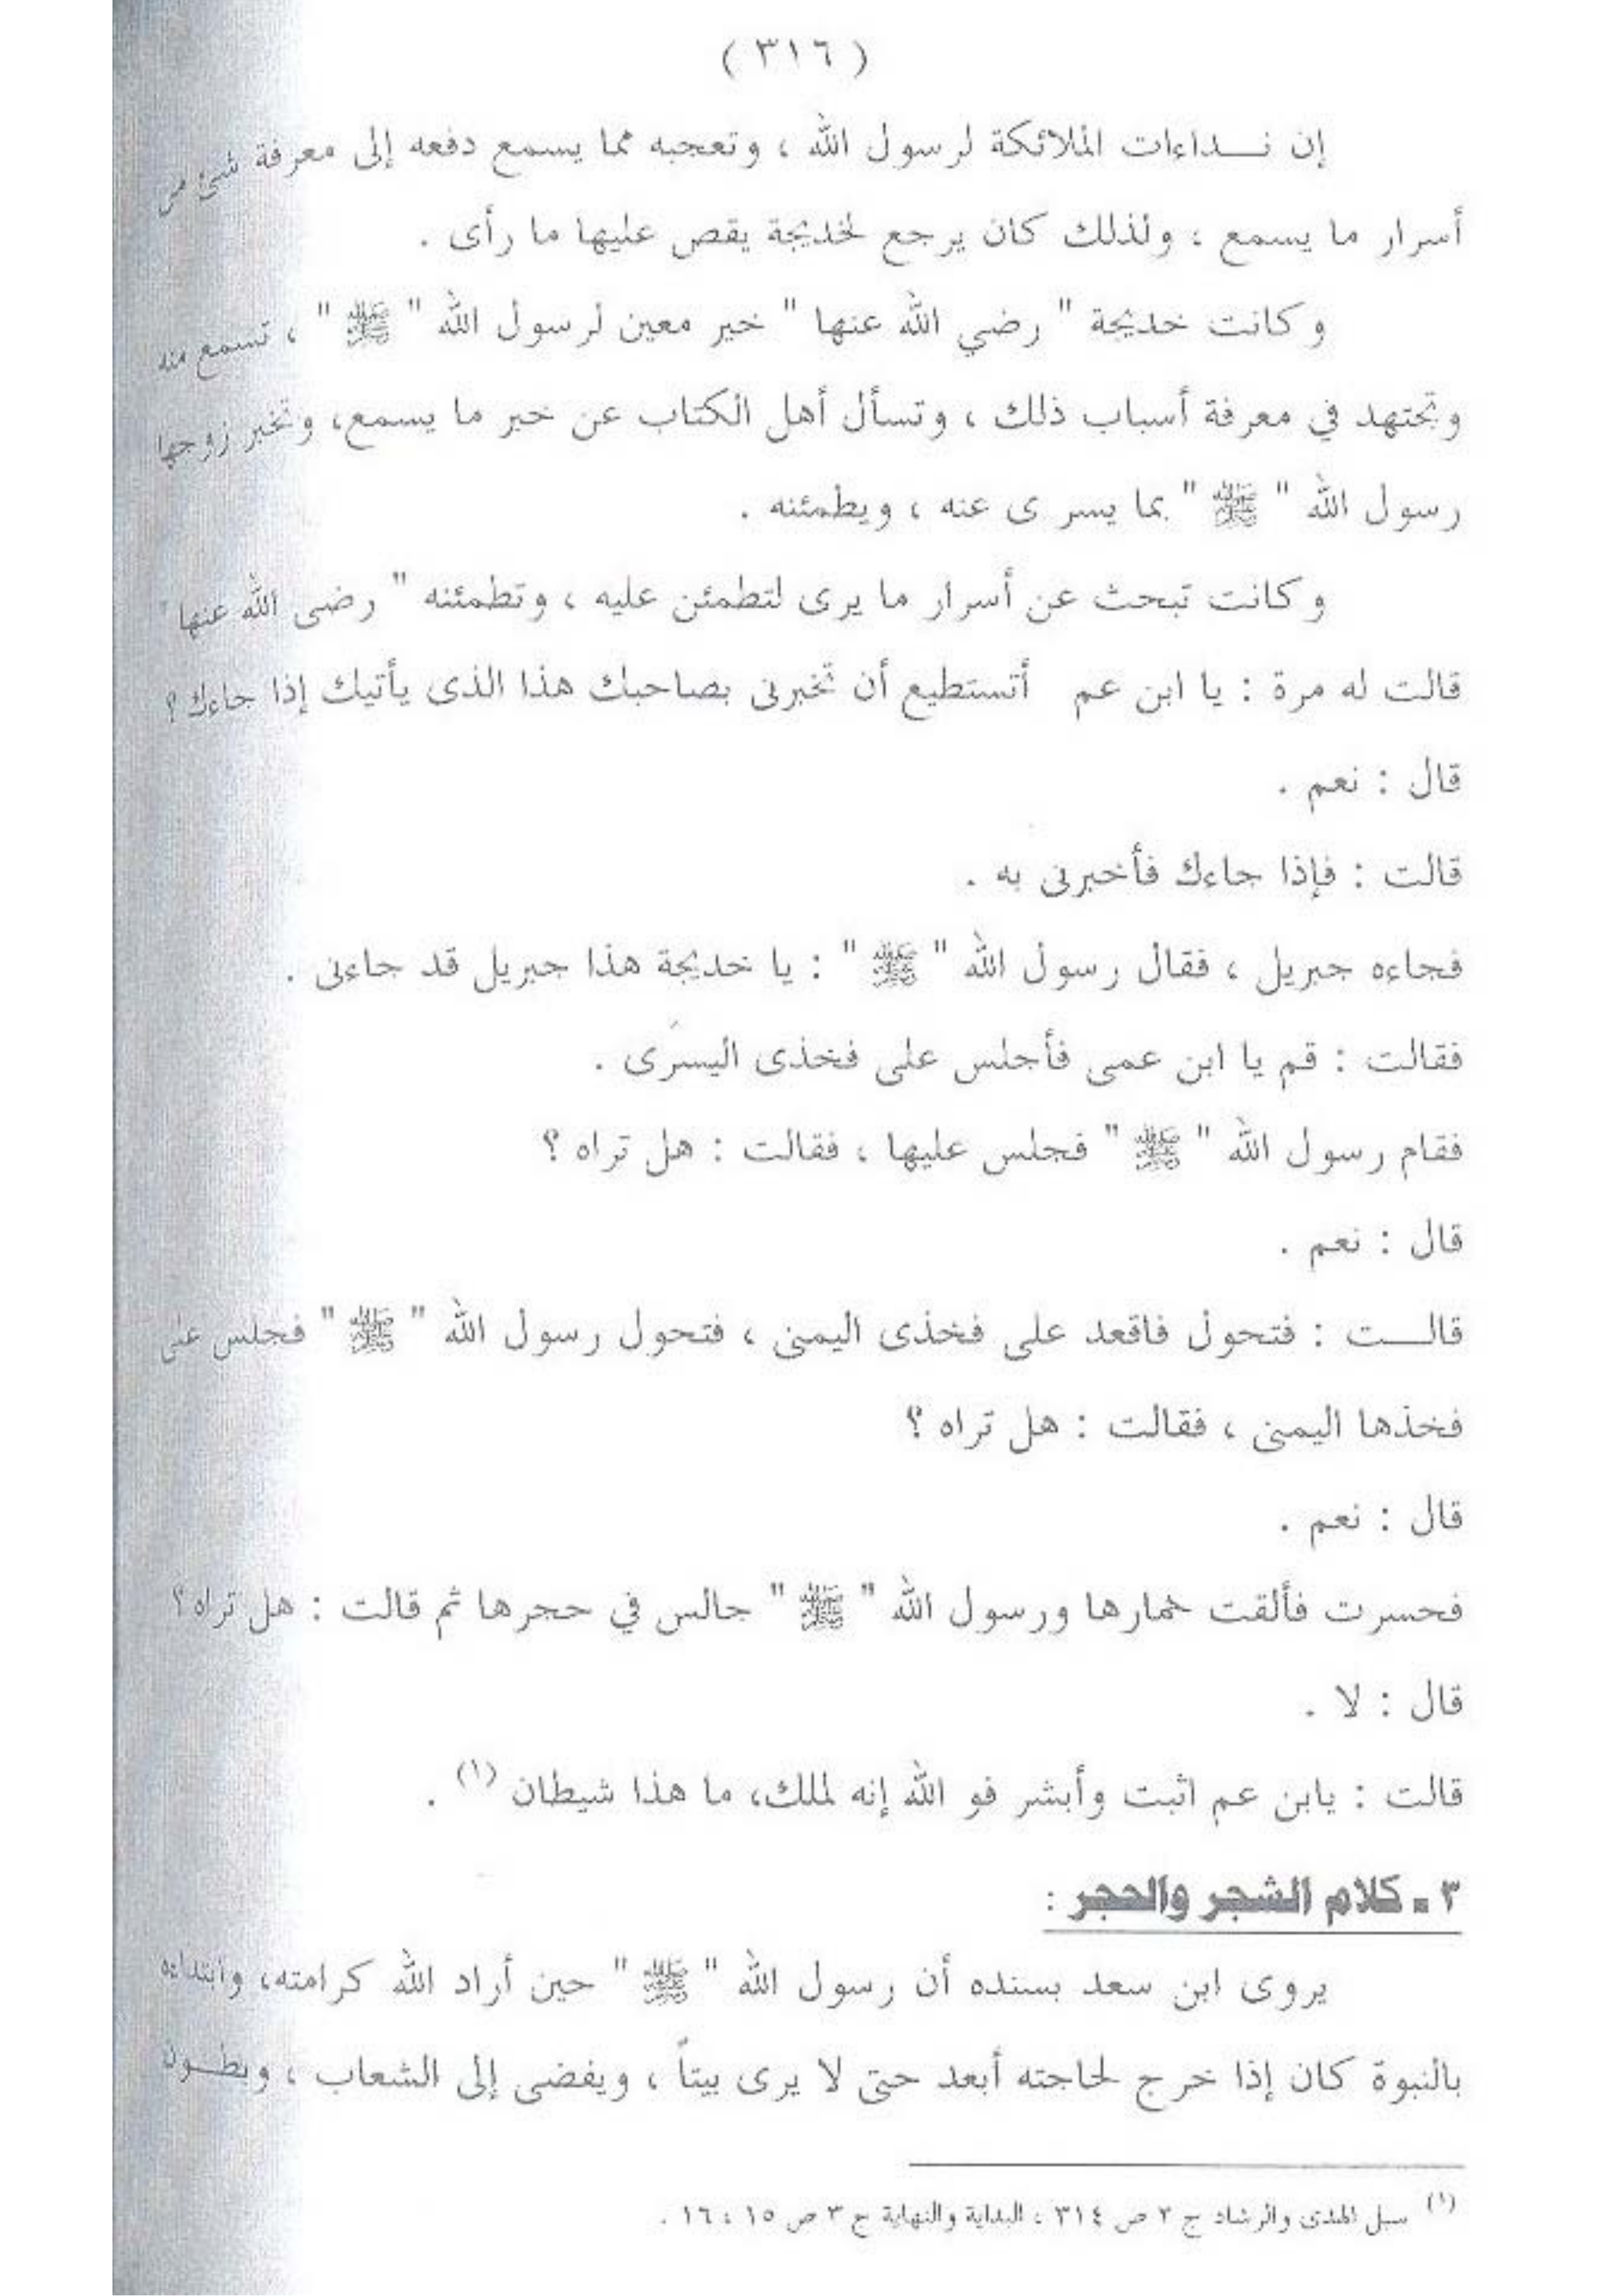 ( ٣١٦ )
إن نـــداءات الملائكة لرسول الله ، وتعجبه مما يسمع دفعه إلى معرفة شئ من
أسرار ما يسمع ، ولذلك كان يرجع لخديجة يقص عليها ما رأى .
وكانت خديجة " رضي الله عنها " خير معين لرسول الله " ﷺ " ، تسمع منه
وتجتهد في معرفة أسباب ذلك ، وتسأل أهل الكتاب عن خبر ما يسمع، وتخبر زوجها
رسول الله " ﷺ " بما يسر ى عنه ، ويطمئنه .
وكانت تبحث عن أسرار ما يرى لتطمئن عليه ، وتطمئنه " رضى الله عنها "
قالت له مرة : يا ابن عم أتستطيع أن تخبرنى بصاحبك هذا الذى يأتيك إذا جاءك ؟
قال : نعم .
قالت : فإذا جاءك فأخبرنى به .
فجاءه جبريل ، فقال رسول الله " ﷺ " : يا خديجة هذا جبريل قد جاءنى .
فقالت : قم يا ابن عمى فأجلس على فخذى اليسرى .
فقام رسول الله " ﷺ " فجلس عليها ، فقالت : هل تراه ؟
قال : نعم .
قالـــت : فتحول فاقعد على فخذى اليمنى ، فتحول رسول الله " ﷺ " فجلس على
فخذها اليمنى ، فقالت : هل تراه ؟
قال : نعم .
فحسرت فألقت خمارها ورسول الله " ﷺ " جالس في حجرها ثم قالت : هل تراه ؟
قال : لا .
قالت : يابن عم اثبت وأبشر فو الله إنه لملك، ما هذا شيطان (١) .
٣ ـ كلام الشجر والحجر :
يروى ابن سعد بسنده أن رسول الله " ﷺ " حين أراد الله كرامته، وابتداءه
بالنبوة كان إذا خرج لحاجته أبعد حتى لا يرى بيتاً ، ويفضى إلى الشعاب ، وبطـون
(١) سبل الهدى والرشاد ج ٢ ص ٣١٤ ، البداية والنهاية ج ٣ ص ١٥ ، ١٦ .